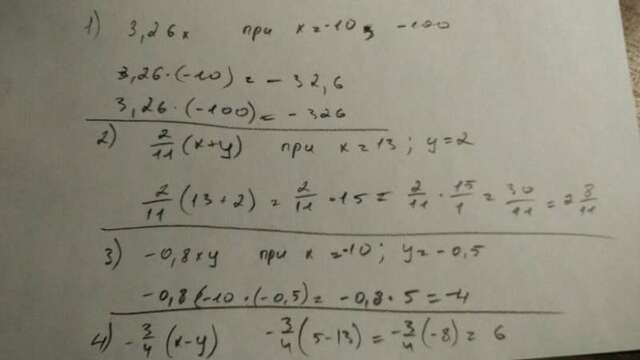 1) 3,26x при x=-10; -100
3,26·(-10)=-32,6
3,26·(-100)=-326
2) 2/11 (x+y) при x=13; y=2
2/11 (13+2) = 2/11 · 15 = 2/11 · 15/1 = 30/11 = 2 8/11
3) -0,8xy при x=-10; y=-0,5
-0,8(-10·(-0,5)= -0,8·5=-4
4) -3/4 (x-y) -3/4 (5-13) = -3/4 (-8) = 6